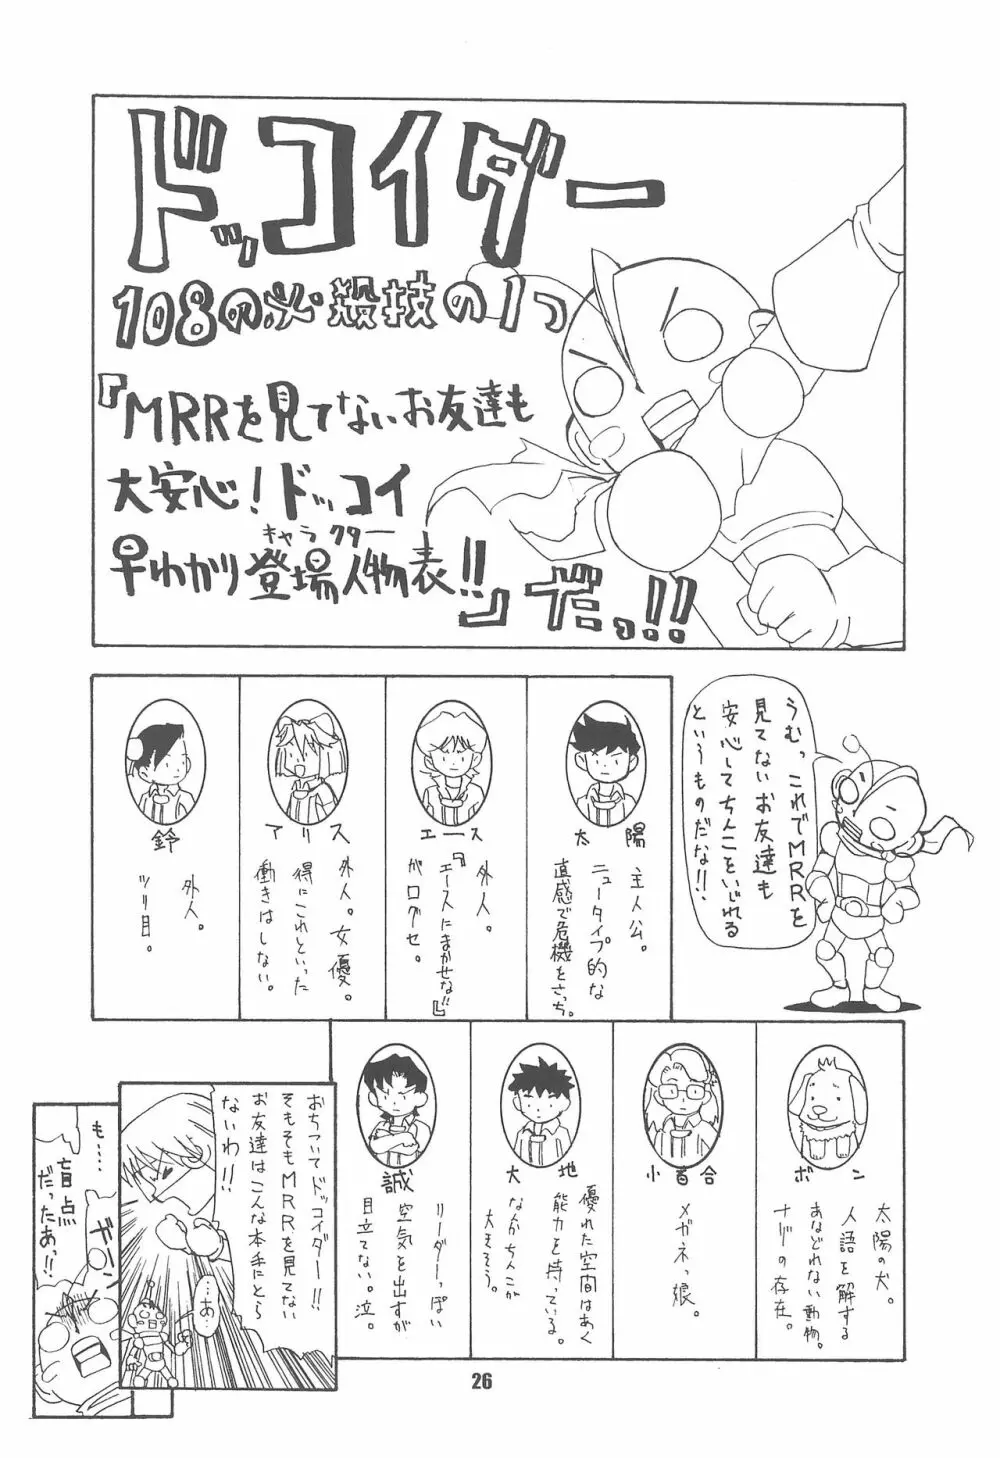 ドッコイダー
108の必殺技の1つ
『MRRを見てないお友達も
大安心!ドッコイ
早わかり登場人物表!!』だっ!!
キャラクター
うむっ、これでMRRを
見てないお友達も
安心してちんこをいじれる
というものだな!!
太陽
主人公。
ニュータイプ的な
直感で危機をさっち。
エース
外人。
『エースにまかせな!!』
がログセ。
アリス
外人。女優。
得にこれといった
働きはしない。
鈴
外人。
ツリ目。
ボン
太陽の犬。
人語を解する
あなどれない動物。
ナゾの存在。
小百合
メガネっ娘。
大地
優れた空間はあく
能力を持っている。
なかちんこが
大きそう。
誠
リーダーっぽい
空気を出すが
目立てない。泣。
おちついてドッコイダー!!
そもそもMRRを見てない
お友達はこんな本手にとら
ないわ!!
…あ。
も……
盲点
だったあっ!!
ガーン
26